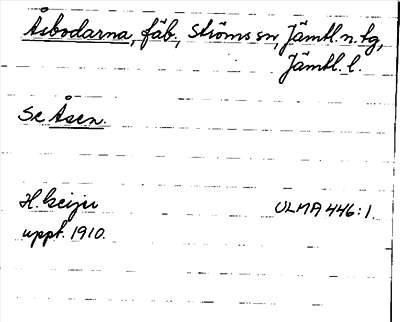 Åsbodarna, fäb., Ströms sn, Jämtl. n. tg,
Jämtl. l.
Se Åsen.
H. Geijer ULMA 446:1.
uppt. 1910.